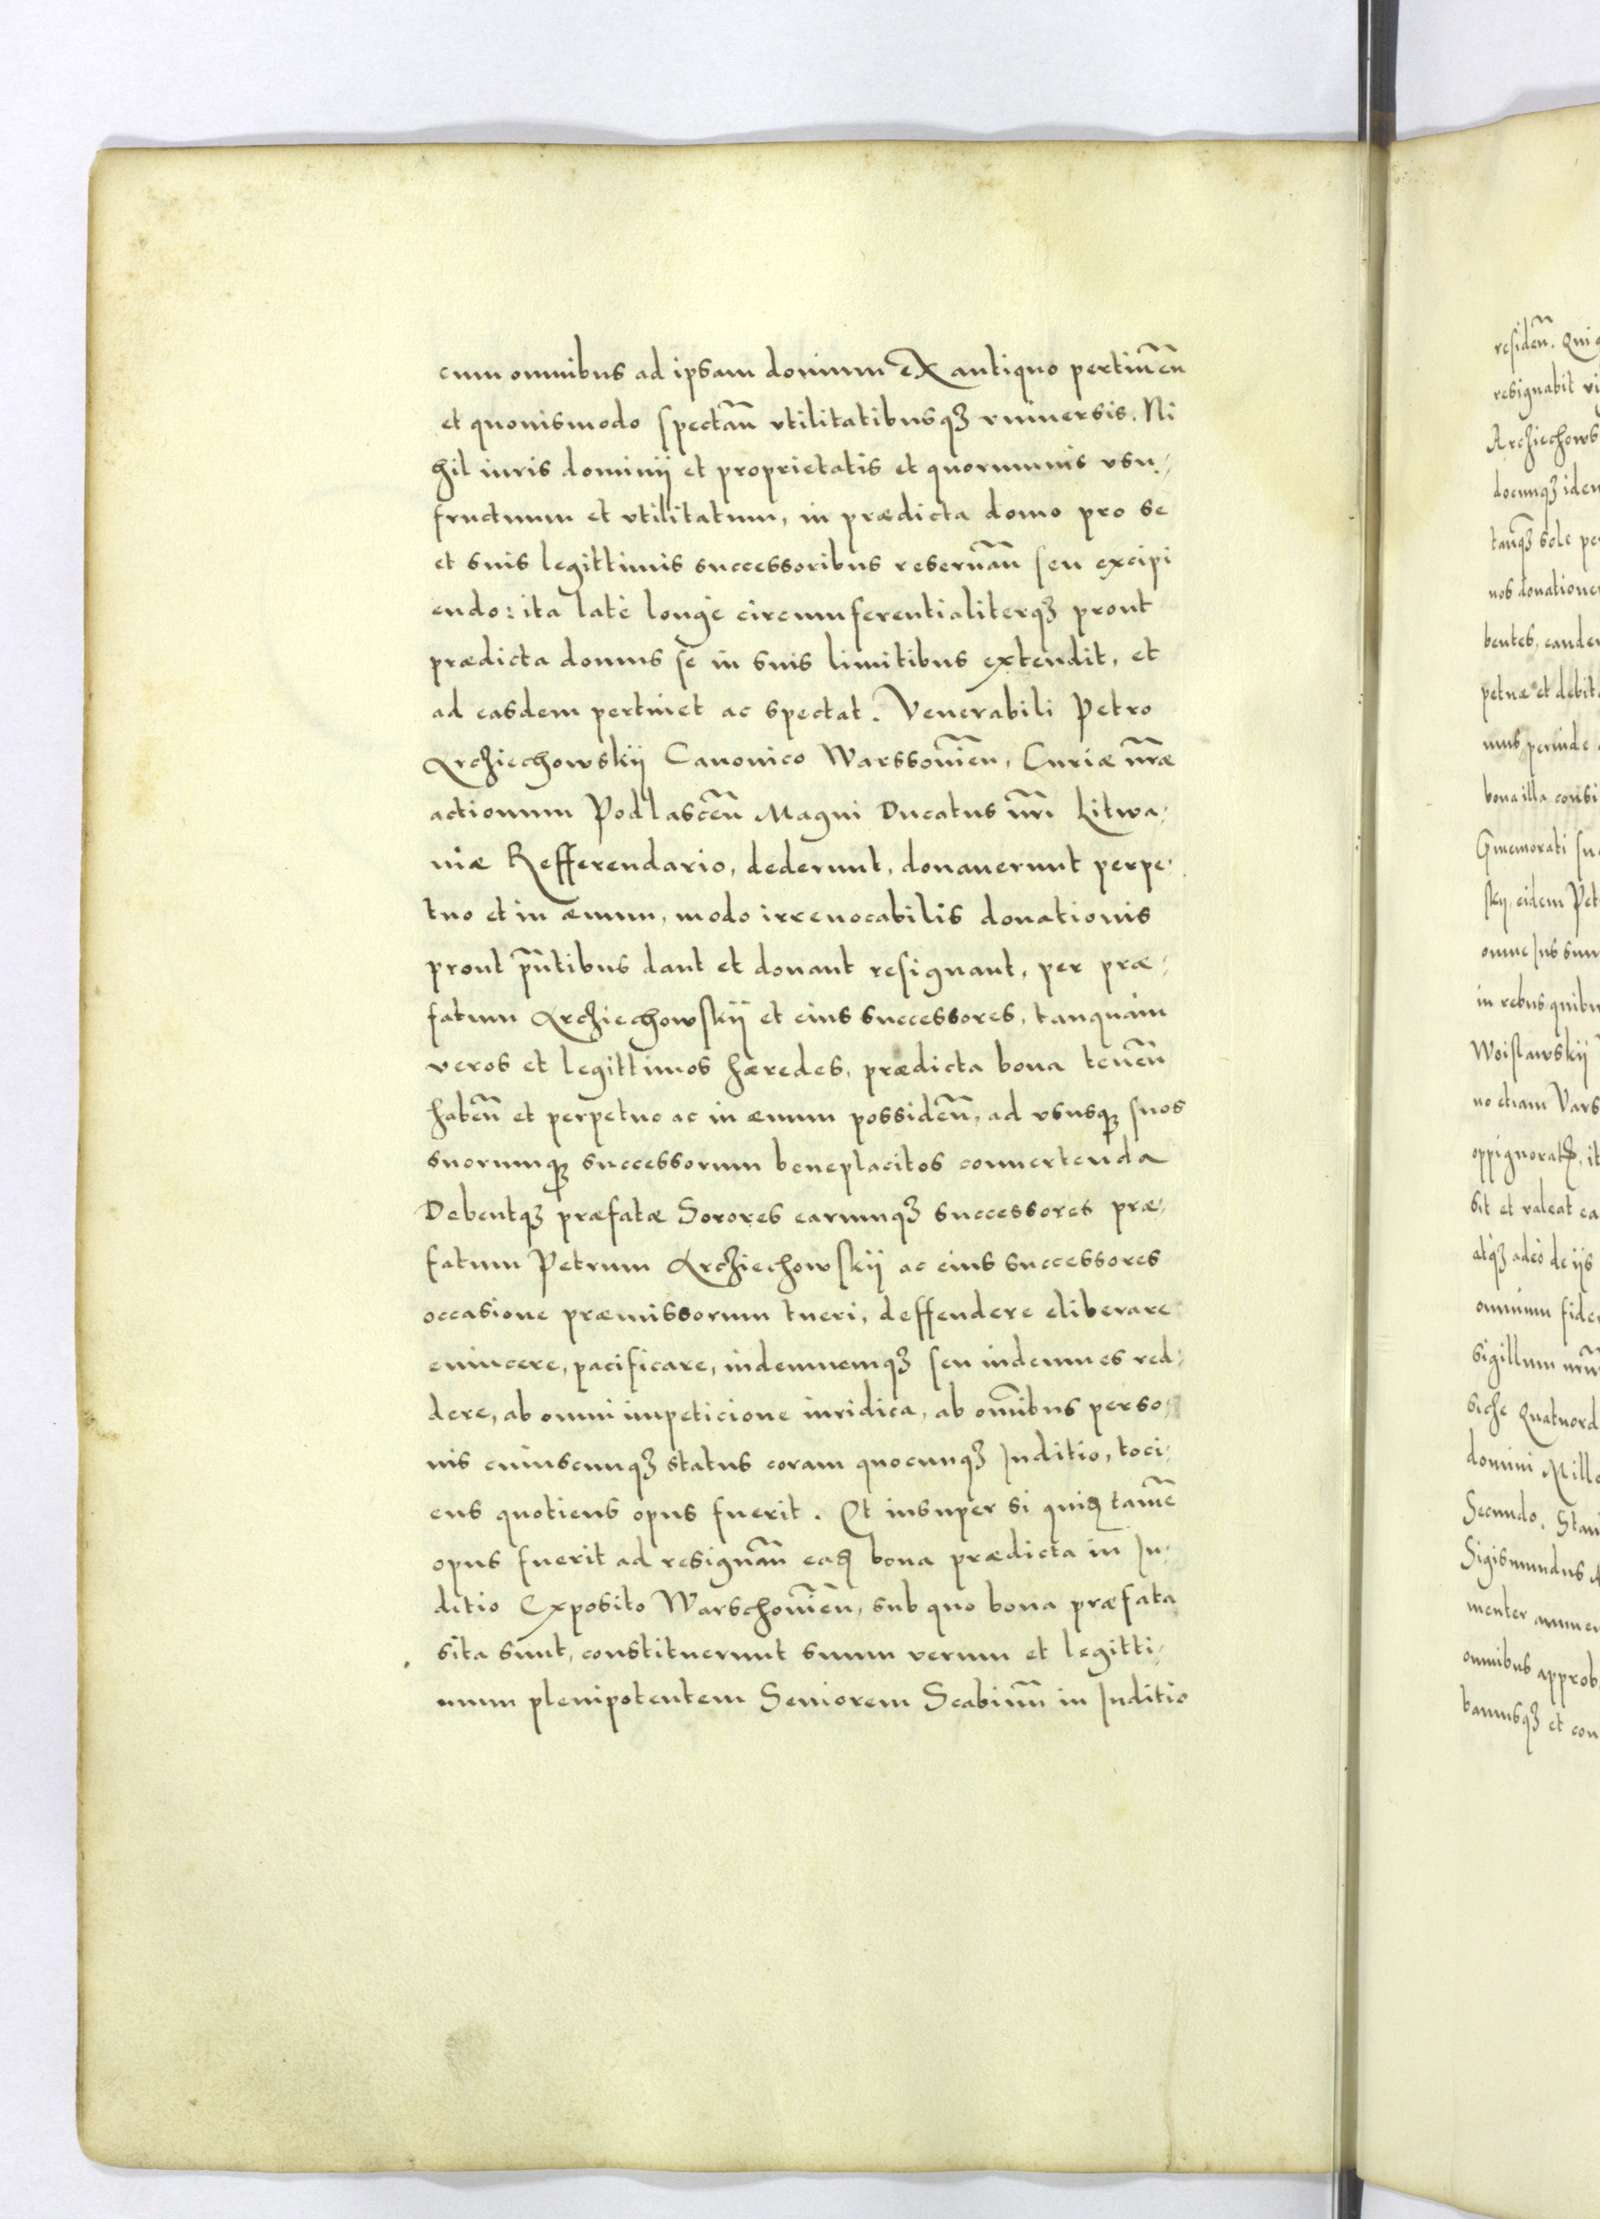 cum omnibus ad ipsam domum ex antiquo pertinen̄
et quouismodo spectan̄ vtilitatibusqꝫ vniuersis. Ni
hil iuris dominij et proprietatis et quorumuis vsu-
fructuum et vtilitatum, in prædicta domo pro se
et suis legittimis successoribus reseruan̄ seu excipi
endo: ita latè longè circumferentialiterqꝫ prout
prædicta domus se in suis limitibus extendit, et
ad easdem pertinet ac spectat. Venerabili Petro
Arcziechowskij Canonico Warssouien̄, Curiæ nr̄æ
actionum Podlascen̄ Magni Ducatus nr̄i Litwa-
niæ Refferendario, dederunt, donauerunt perpe-
tuo et in æuum, modo irreuocabilis donationis
prout pn̄tibus dant et donant resignant, per præ-
fatum Arcziechowskij et eius successores, tanquam
veros et legittimos hæredes, prædicta bona tenen̄
haben̄ et perpetuo ac in æuum possiden̄, ad vsusqꝫ suos
suorumqꝫ successorum beneplacitos conuertenda
Debentqꝫ præfatæ Sorores earumqꝫ successores præ-
fatum Petrum Arcziechowskij ac eius successores
occasione præmissorum tueri, deffendere eliberare
euincere, pacificare, indemnemqꝫ seu indemnes red-
dere, ab omni impeticione iuridica, ab om̄ibus perso-
nis cuiuscunqꝫ status coram quocunqꝫ Juditio, toci-
ens quotiens opus fuerit. Et insuper si quidē tamē
opus fuerit ad resignan̄ eadē bona prædicta in Ju-
ditio Exposito Warschouien̄, sub quo bona præfata
sita sunt, constituerunt suum verum et legitti-
mum plenipotentem Seniorem Scabinum̄ in Juditio
residen̄. Qui
resignabit
Arcziechows
docunqꝫ iden
tanqꝫ sole pe
nos donatione
bentes, eande
petuæ et debit
mus, perinde
bona illa consi
Gmemorati su
skij, eidem Pet
omne Jus suu
in rebus quibu
Woislawskij
no etiam Vars
oppignorat, it
sit et valeat ea
atqꝫ adeò de ijs
omnium fide
sigillum nr̄m
siche Quatuord
domini Mille
Secundo. Stan
Sigismundus A
menter annue
omnibus approb
bamusqꝫ et con